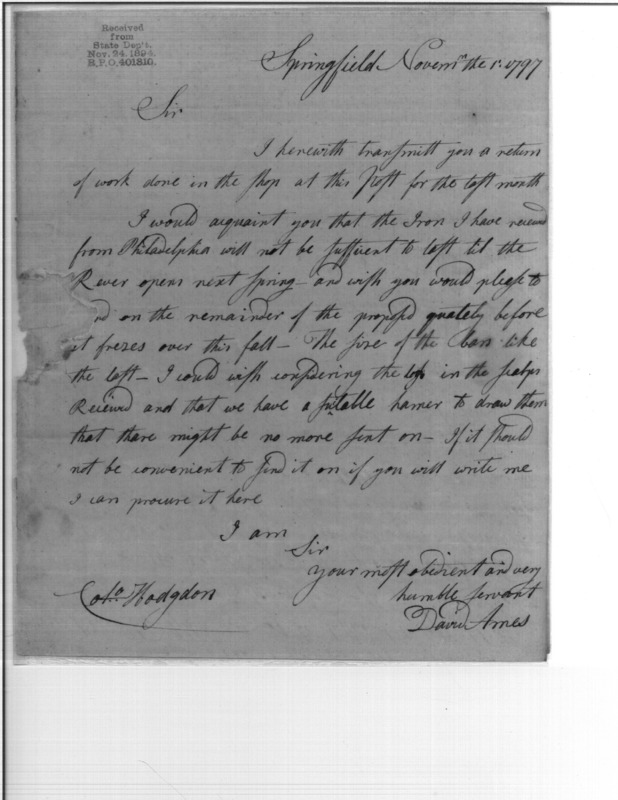 Received
from
State Dep't.
Nov. 24. 1894.
R.P.O. 401810.
Springfield Novemr the 1t 1797
Sir
I herewith transmitt you a return
of work done in the shop at this Post for the last month
I would acquaint you that the Iron I have received
from Philadelphia will not be suffient to last til the
River opens next spring - and wish you would please to
nd on the remainder of the proposd quately before
it frezes over this fall - The sise of the bars like
the last - I could wish considering the loss in the scalps
Received and that we have a sutable hamer to draw them
that thare might be no more sent on - If it should
not be convenient to send it on if you will write me
I can procure it here
I am
Sir
your most obedient and very
humble servant
David Ames
Colo Hodgdon